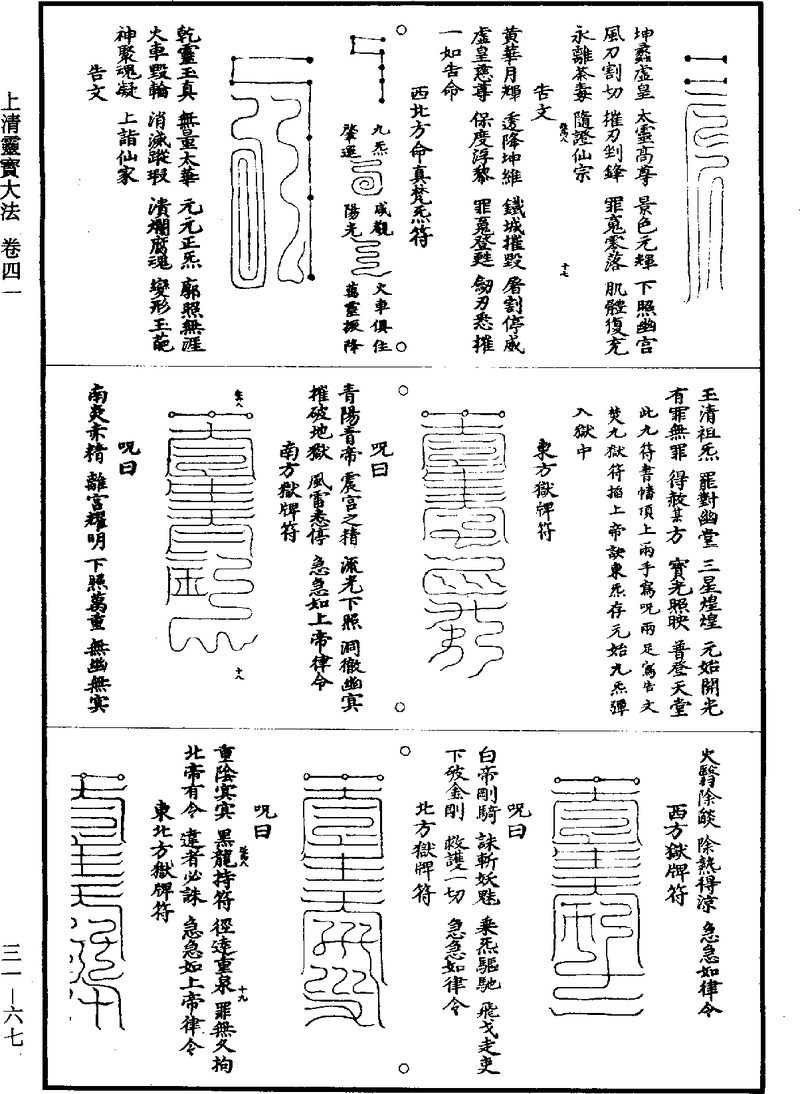 上清靈寶大法 卷四一
三一—六七
坤蠡虛皇 太靈高尊 景色元輝 下照幽宮
風刀割切 摧刃剉鋒 罪寃零落 肌體復充
永離荼毒 隨證仙宗
告文
十七
黃華月輝 透降坤維 鐵城摧毀 屠割停威
虛皇慈尊 保度浮黎 罪寃登甦 劒刃悉摧
一如告命
西北方命真梵炁符
九炁 威觀 火車俱住
肇運 陽光 萬靈振降
乾靈玉真 無量太華 元元正炁 廓照無涯
火車毀輪 消滅蹤瑕 潰爛腐魂 變形玉葩
神聚魂凝 上詣仙家
告文
玉清祖炁 罪對幽堂 三星煌煌 元始開光
有罪無罪 得赦某方 寶光照映 普登天堂
此九符書幡頂上兩手寫呪兩足寫告文
焚九獄符掐上帝訣東炁存元始九炁彈
入獄中
東方獄牌符
呪曰
青陽青帝 震宮之精 流光下照 洞徹幽冥
摧破地獄 風雷悉停 急急如上帝律令
南方獄牌符
十八
呪曰
南炎赤精 離宮耀明 下照萬重 無幽無冥
火翳除燄 除熱得涼 急急如律令
西方獄牌符
呪曰
白帝剛騎 誅斬妖魅 乘炁驅馳 飛戈走吏
下破金剛 救護一切 急急如律令
北方獄牌符
呪曰
重陰冥冥 黑龍持符 徑達重泉 罪無久拘
十九
北帝有令 違者必誅 急急如上帝律令
東北方獄牌符